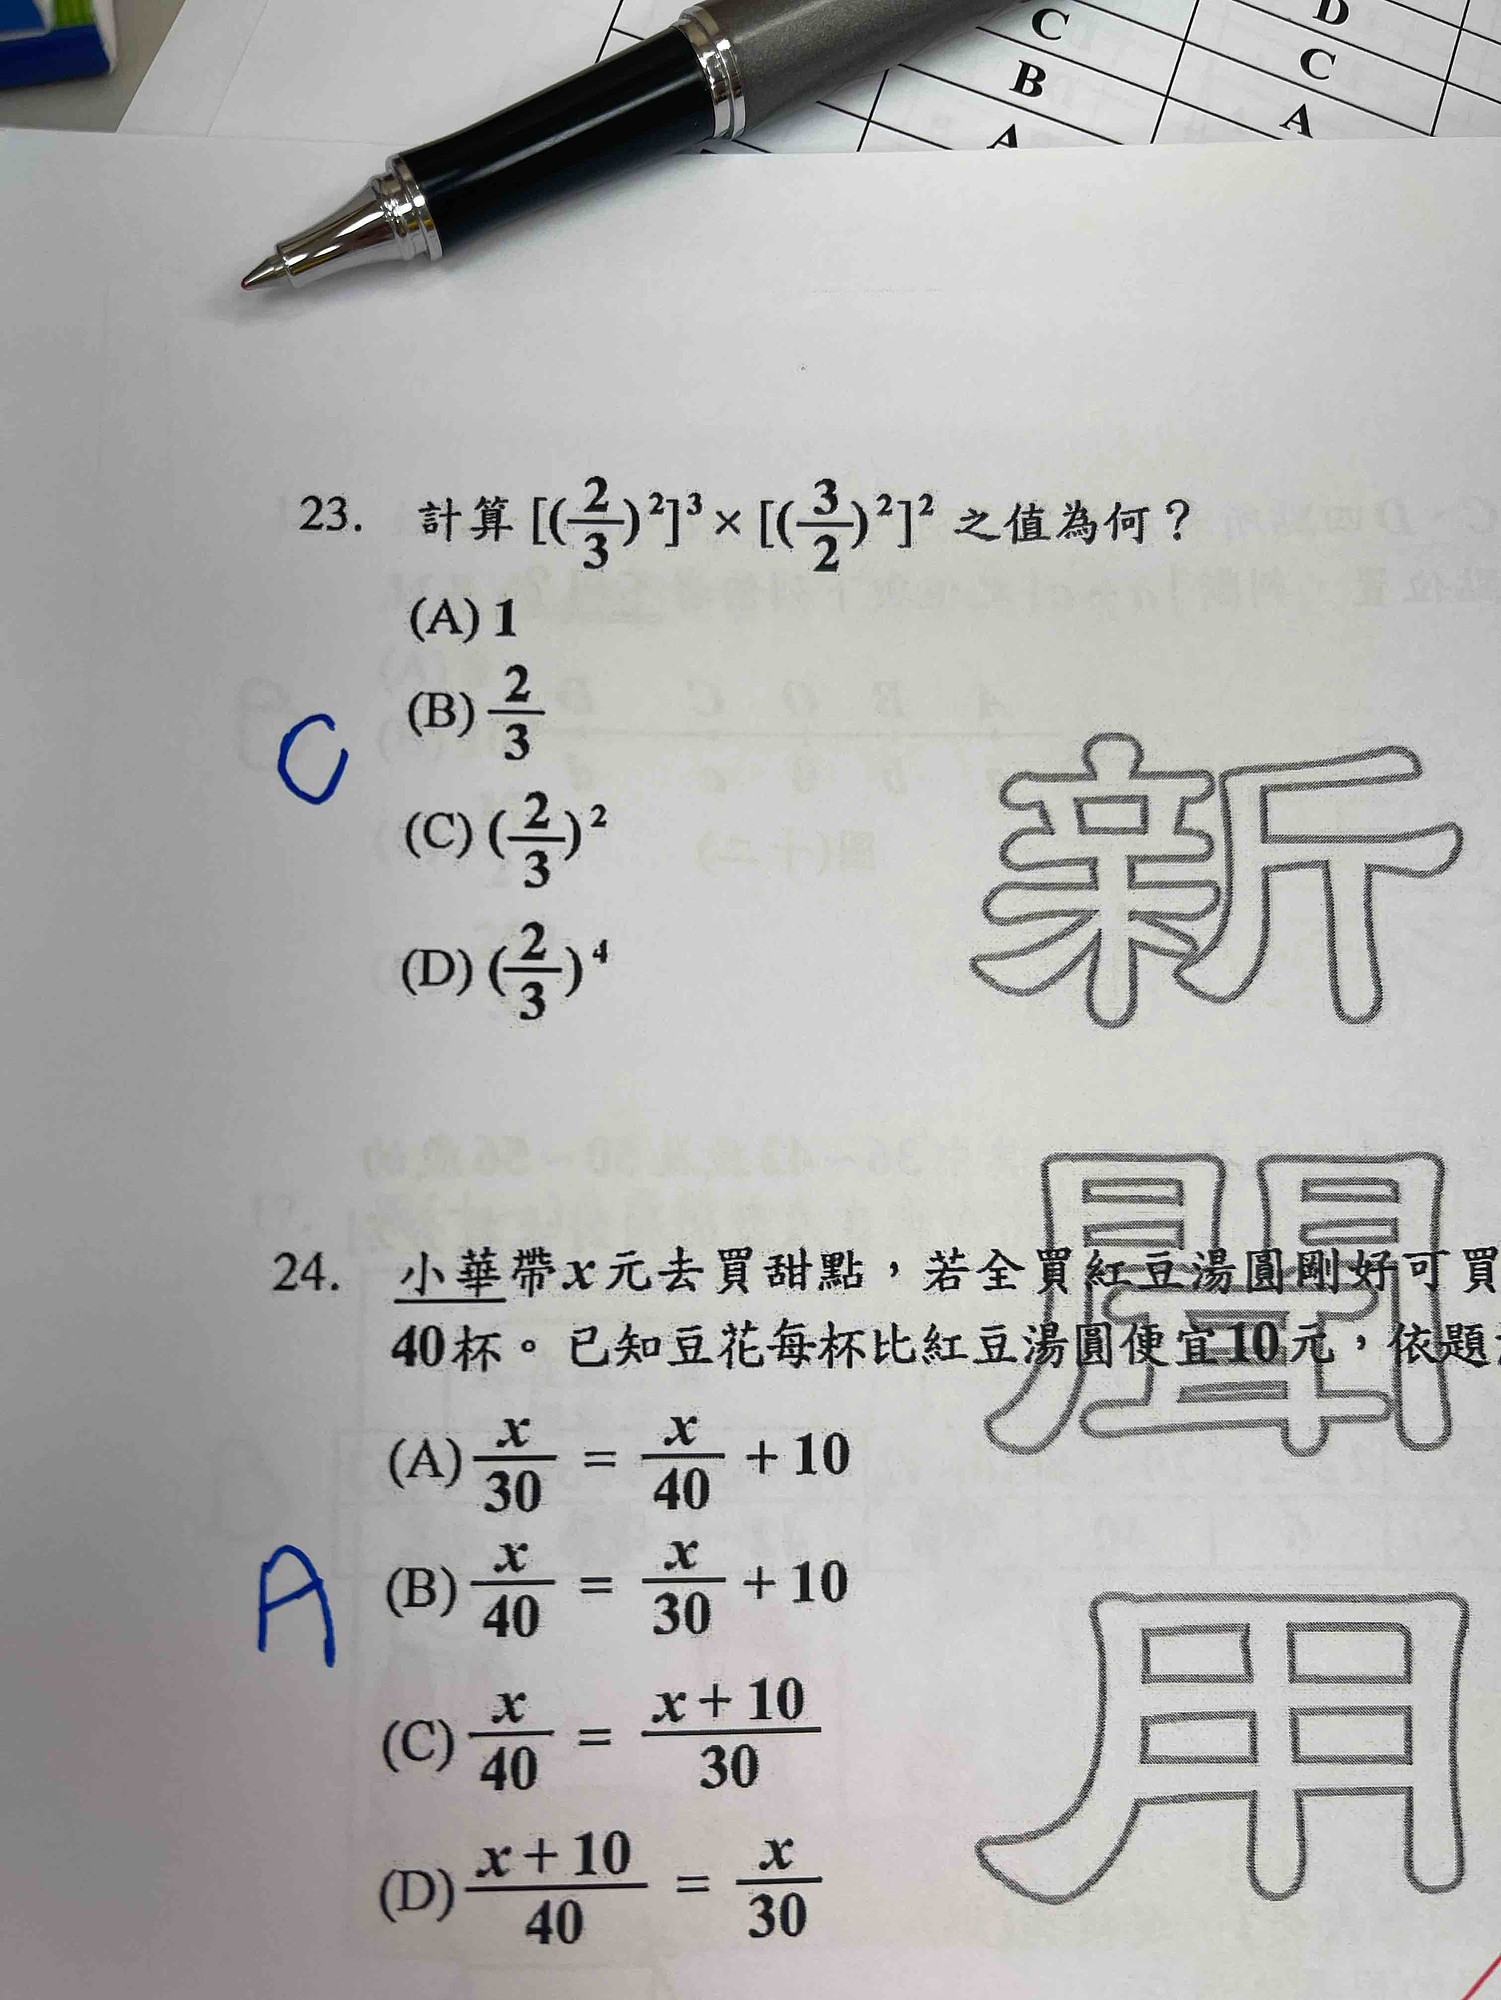 D
C
C
B
A
A
23. 計算 [(2/3)²]³ × [(3/2)²]² 之值為何？
(A) 1
(B) 2/3
C
(C) (2/3)²
(D) (2/3)⁴
新
聞
用
24. 小華帶x元去買甜點，若全買紅豆湯圓剛好可買
40杯。已知豆花每杯比紅豆湯圓便宜10元，依題
(A) x/30 = x/40 + 10
A
(B) x/40 = x/30 + 10
(C) x/40 = (x + 10)/30
(D) (x + 10)/40 = x/30